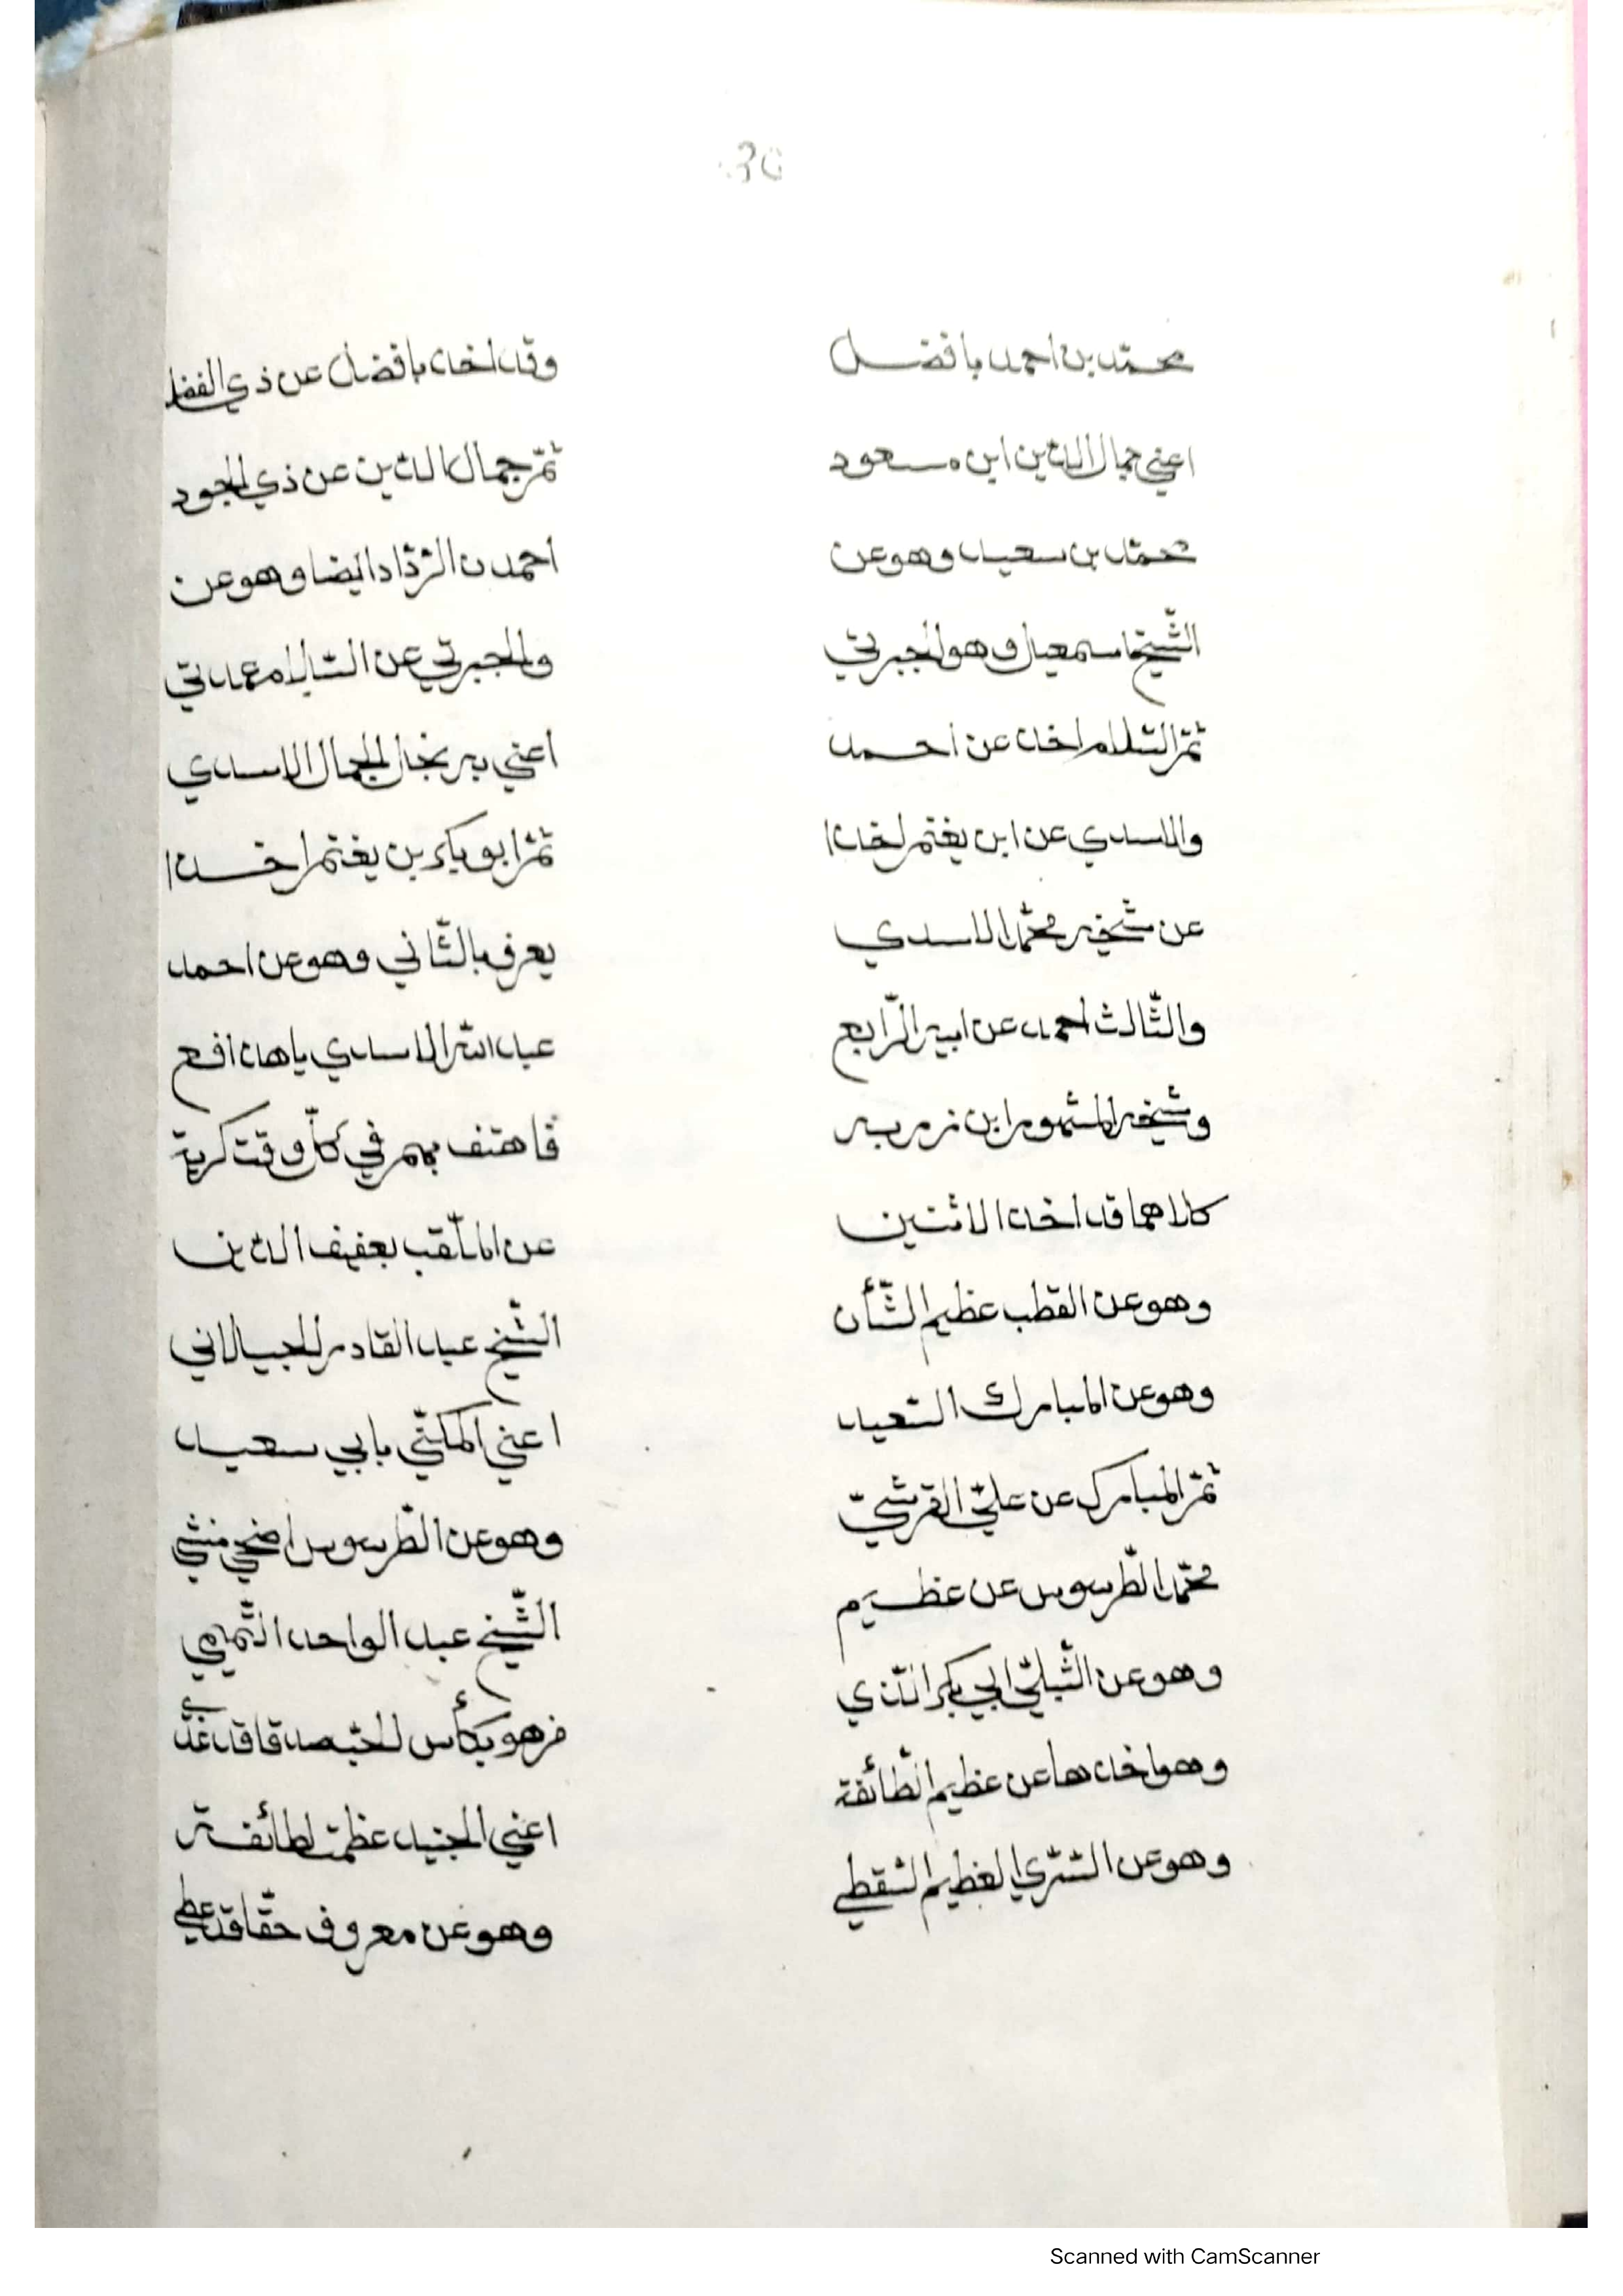 30
محمّد بن احمد بافضل وقد اخذ بافضل عن ذي الفضل
اعني جمال الدّين ابن مسعود ثمّ جمال الدّين عن ذي الجود
محمّد بن سعيد وهو عن احمد بن الرّدّاد ايضا وهو عن
الشّيخ اسمعيل وهو الجبرتي والجبرتي عن السّلام
ثمّ السّلام اخذ عن احمد اعني به نجل الجمال الاسدي
والاسدي عن ابن يغنم اخذا ثمّ ابو بكر بن يغنم اخذا
عن شيخه محمّد الاسدي يعرف بالثّاني وهو عن احمد
والثّالث احمد عن ابيه الرّابع عبد اللّه الاسدي يا هذا فع
وشيخه المشهور ابن زربه فاهتف بهم في كلّ وقت كربة
كلاهما قد اخذا الاثنين عن الملّقب بعفيف الدّين
وهو عن القطب عظيم الشّأن الشّيخ عبد القادر الجيلاني
وهو عن المبارك السّعيد اعني المكنّي بابي سعيد
ثمّ المبارك عن عليّ القرشيّ وهو عن الطّرسوس اضحى منشي
محمّد الطّرسوس عن عظيم الشّيخ عبد الواحد التّميمي
وهو عن الشّبليّ ابي بكر الّذي من هو بكأس الحبّ صدقا قد غذّي
وهو اخذها عن عظيم الطّائفة اعني الجنيد عظمت لطائفه
وهو عن السّريّ العظيم السّقطي وهو عن معروف حقّا قد عطي
Scanned with CamScanner